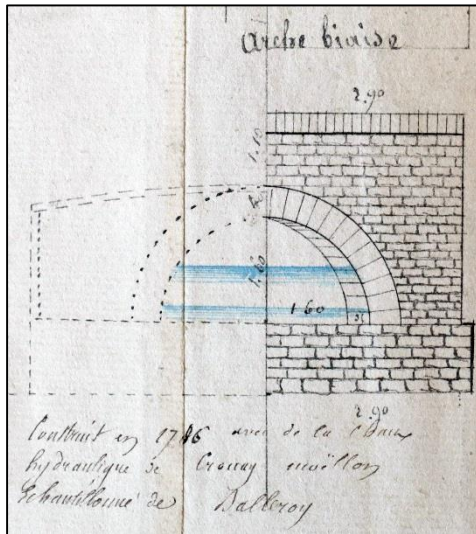 arche biaise
2.90
1.10
1.60
1.60
2.90
Construit en 1786 avec de la Chaux
hydraulique de Crouay moëllon
échantillonné de Balleroy